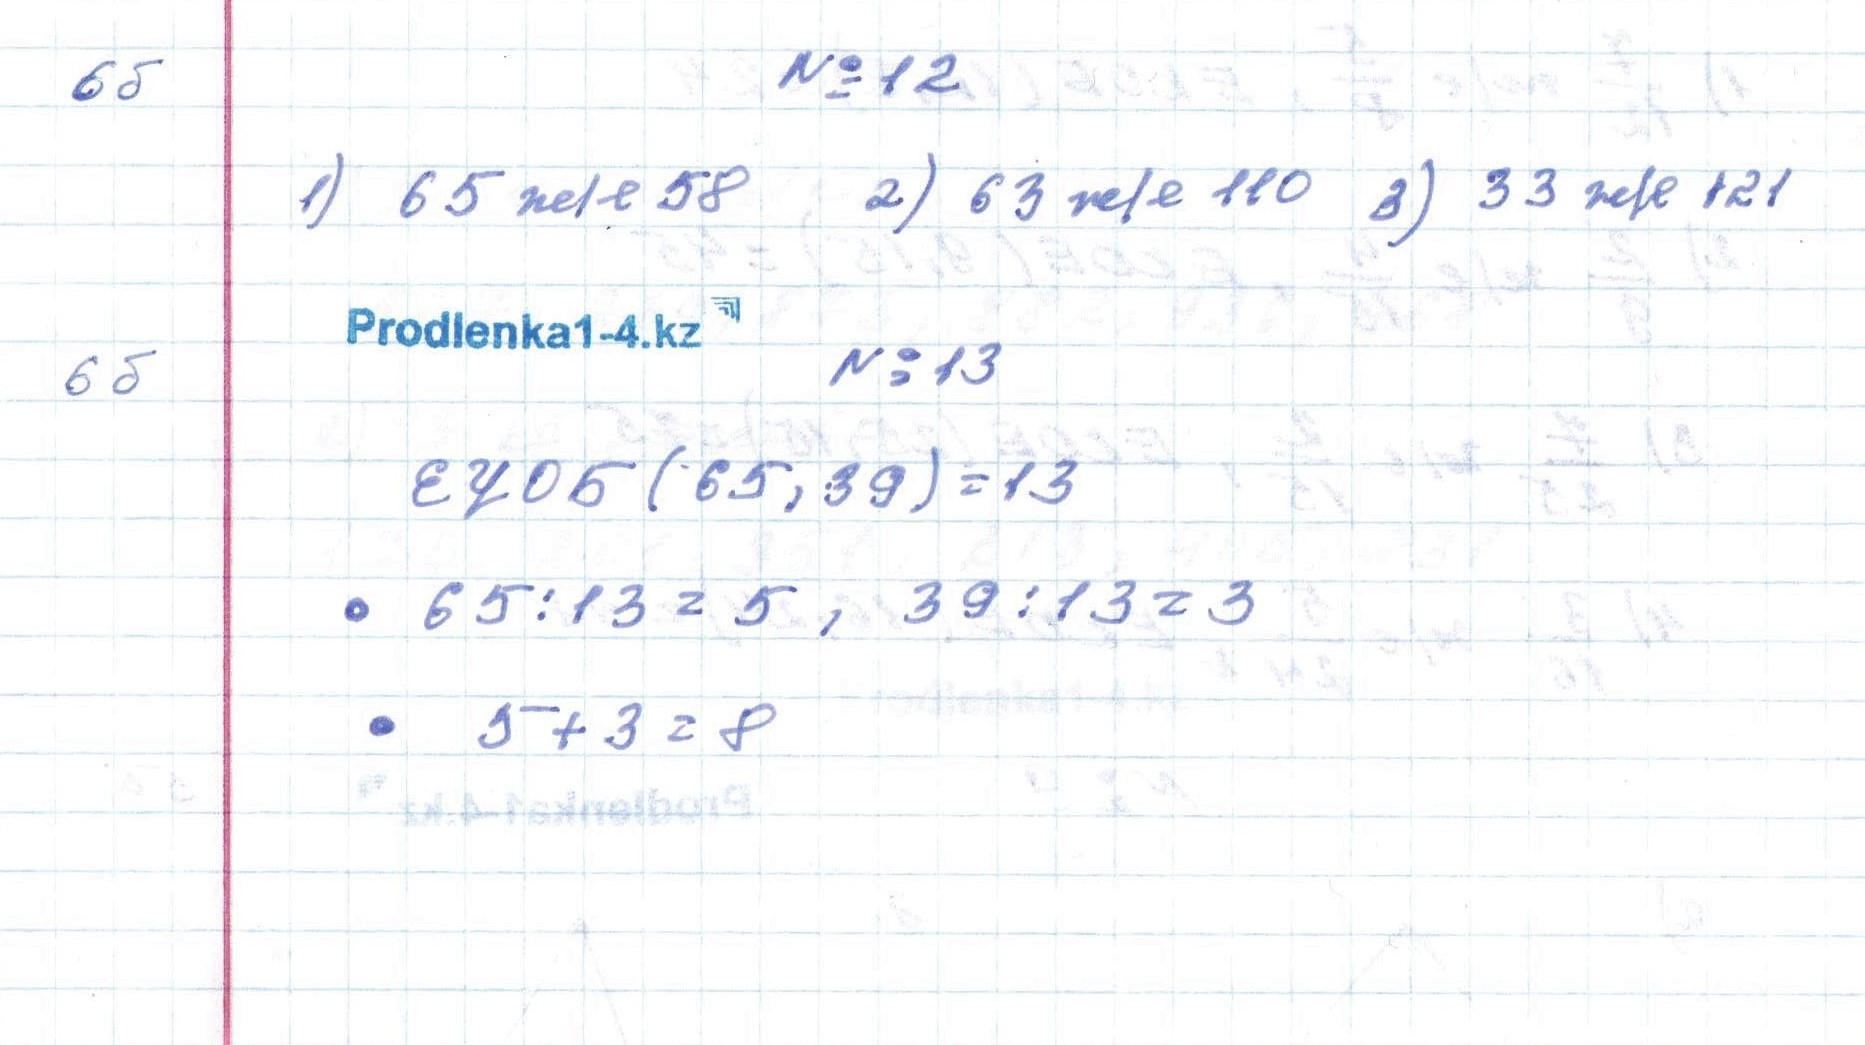 6б № 12
1) 65 және 58 2) 63 және 110 3) 33 және 121
Prodlenka1-4.kz
6б № 13
ЕҮОБ (65, 39) = 13
• 65 : 13 = 5 , 39 : 13 = 3
• 5 + 3 = 8